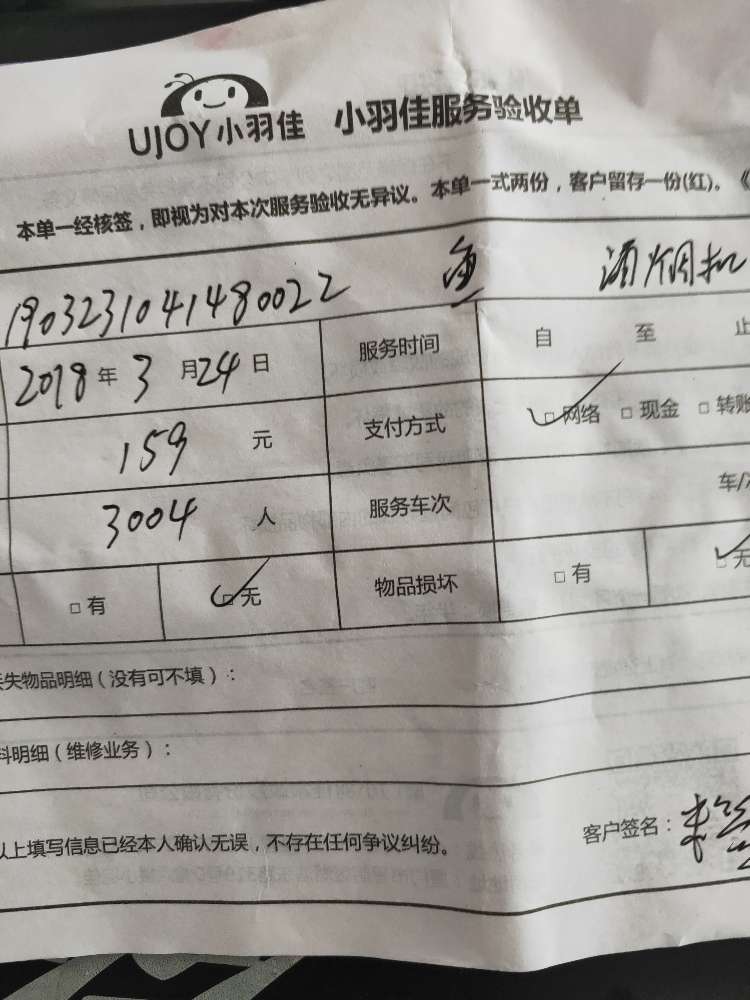 UJOY小羽佳 小羽佳服务验收单
本单一经核签，即视为对本次服务验收无异议。本单一式两份，客户留存一份(红)。《
1903231041480022 油烟机
2018年3月24日 服务时间 自 至 止
159 元 支付方式 □网络 □现金 □转账
3004 人 服务车次 车/
□有 □无 物品损坏 □有 □无
失物品明细（没有可不填）：
料明细（维修业务）：
以上填写信息已经本人确认无误，不存在任何争议纠纷。
客户签名：